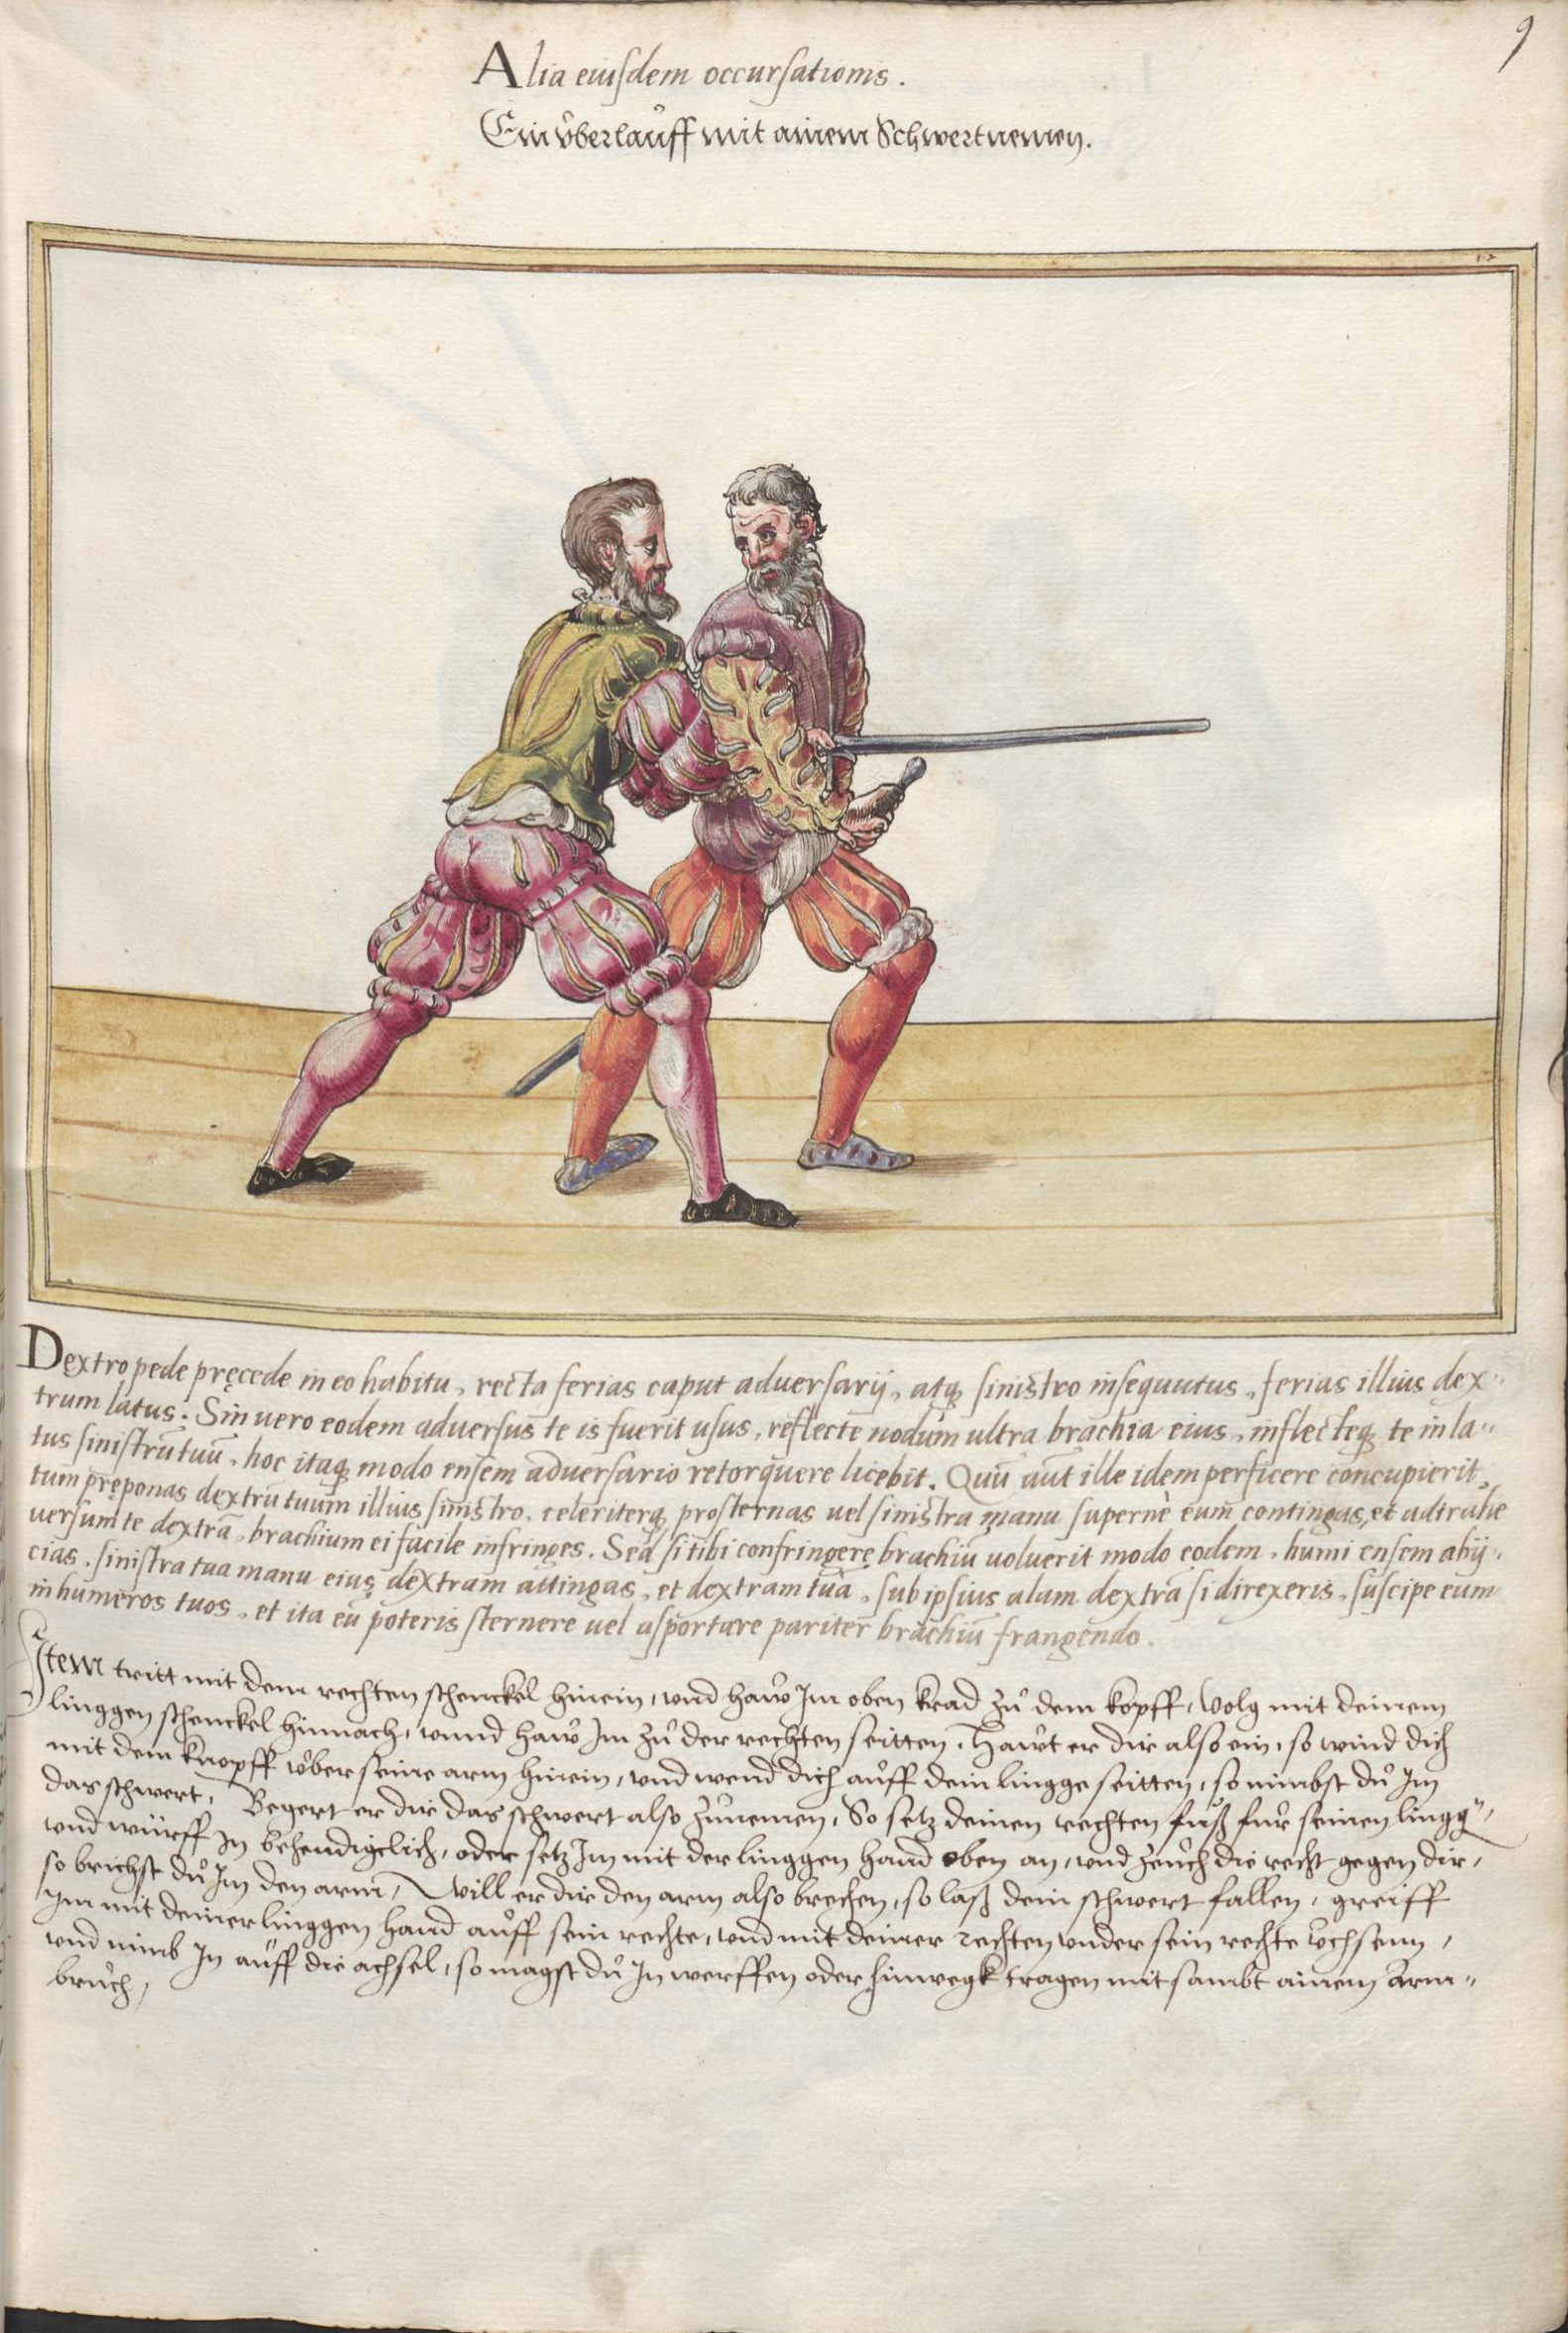 9
Alia eiusdem occursationis.
Ein vberlauff mit ainem Schwertnemen.
Dextro pede pręcede in eo habitu, recta ferias caput aduersarij, atq; sinistro insequutus, ferias illius dex-
trum latus. Sin uero eodem aduersus te is fuerit usus, reflecte nodum ultra brachia eius, inflecteq; te in la-
tus sinistrū tuū, hoc itaq; modo ensem aduersario retorquere licebit. Quū aūt ille idem perficere concupierit,
tum pręponas dextrū tuum illius sinistro, celeriterq; prosternas uel sinistra manu supernè eum contingas, et adtrahe
uersum te dextrā, brachium ei facile infringes. Sed si tibi confringere brachiū uoluerit modo eodem, humi ensem abij-
cias, sinistra tua manu eius dextram attingas, et dextram tuā, sub ipsius alam dextrā si direxeris, suscipe eum
in humeros tuos, et ita eū poteris sternere uel asportare pariter brachiū frangendo.
Item tritt mit dem rechten schenckel hinein, vnd haw Im oben krad zů dem kopff, volg mit deinem
linggen schenckel hinnach, vnnd haw Im zů der rechten seitten, Hawt er dir also ein, so wind dich
mit dem knopff vber seine arm hinein, vnd wend dich auff dein lingge seitten, so nimbst dů Im
das schwert, Begert er dir das schwert also zůnemen, So setz deinen rechten fuß fur seinen lingg̃,
vnd würff In behendigclich, oder setz Im mit der linggen hand oben an, vnd zeuch die recht gegen dir,
so brichst dů Im den arm, Will er dir den arm also brechen, so laß dein schwert fallen, greiff
Im mit deiner linggen hand auff sein rechte, vnd mit deiner rechten vnder sein rechte vchsenn,
vnd nimb In auff die achsel, so magst dů In werffen oder hinwegk tragen mit sambt ainem Arm-
bruch,